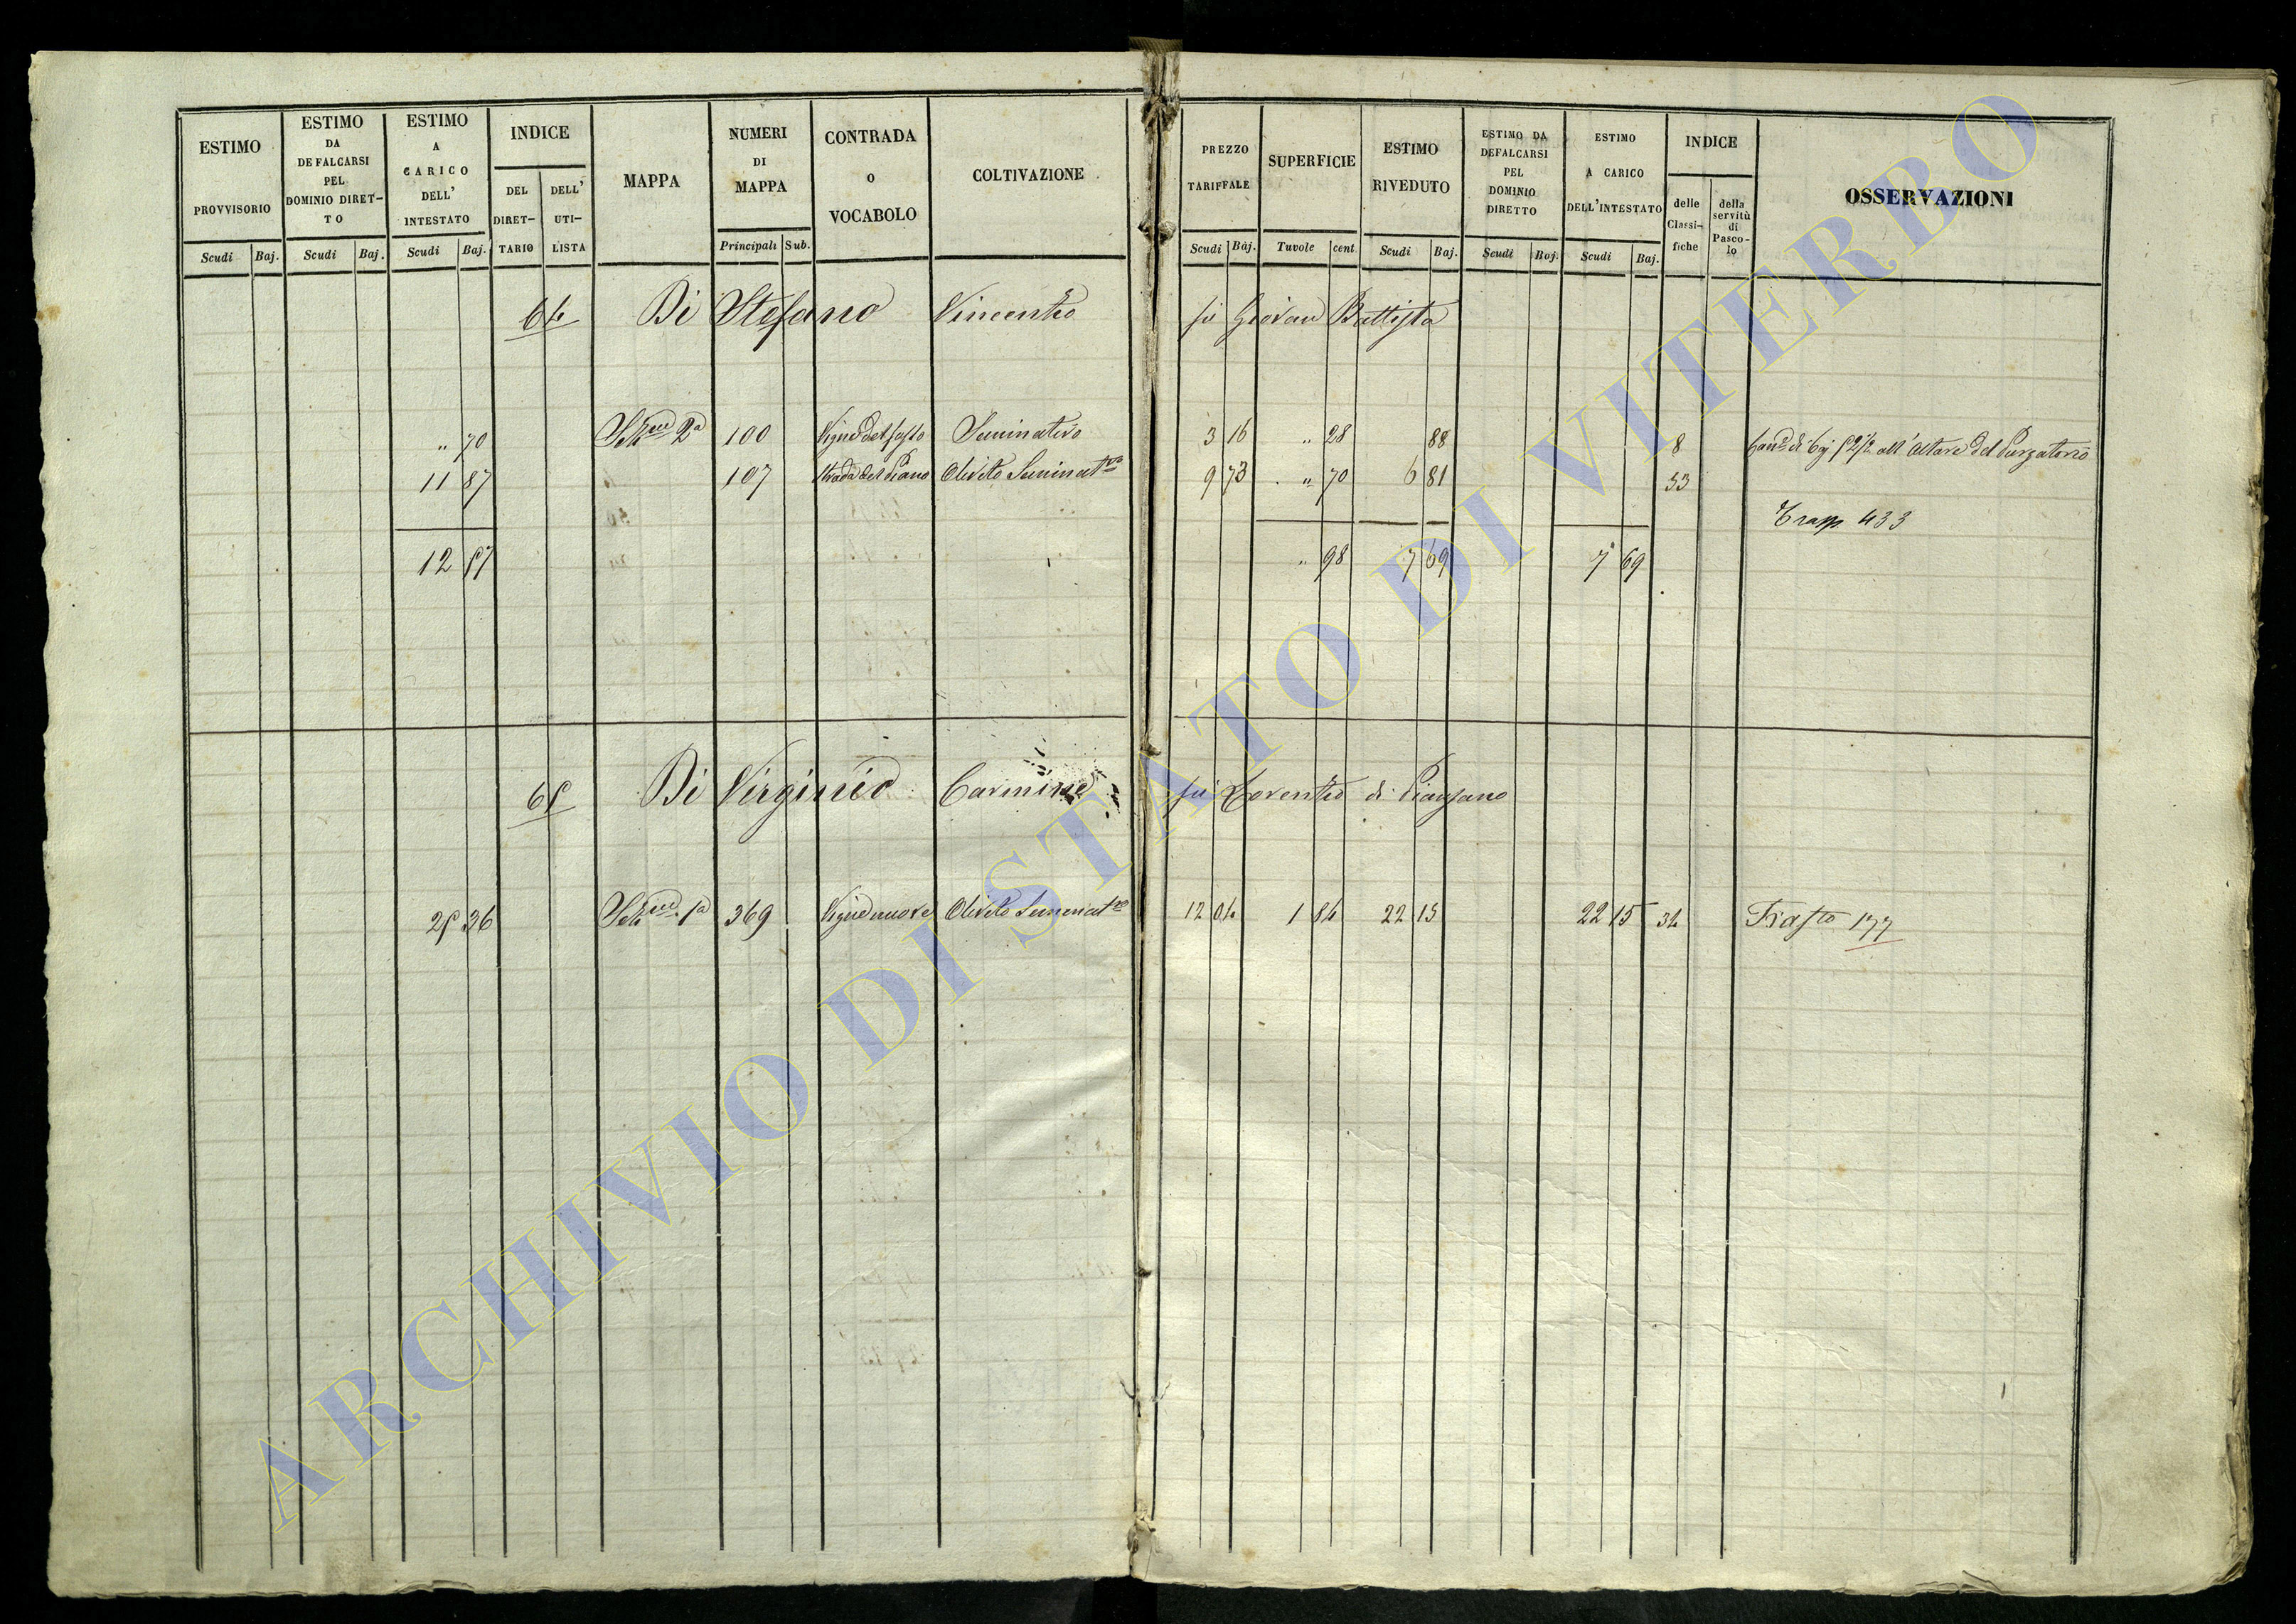 ESTIMO PROVVISORIO
ESTIMO DA DEFALCARSI PEL DOMINIO DIRET-TO
ESTIMO A CARICO DELL' INTESTATO
INDICE
DEL DIRET-TARIO
DELL' UTI-LISTA
MAPPA
NUMERI DI MAPPA
CONTRADA O VOCABOLO
COLTIVAZIONE
PREZZO TARIFFALE
SUPERFICIE
ESTIMO RIVEDUTO
ESTIMO DA DEFALCARSI PEL DOMINIO DIRETTO
ESTIMO A CARICO DELL'INTESTATO
INDICE
delle Classi-fiche
della servitù di Pasco-lo
OSSERVAZIONI
Scudi Baj. Scudi Baj. Scudi Baj. Principali Sub. Scudi Baj. Tavole cent. Scudi Baj. Scudi Baj. Scudi Baj.
64 Di Stefano Vincenzo fu Giovan Battista
" 70 Sez.ne 2a 100 Vigne del sasso Seminativo 3 16 " 28 88 8 di Baj 52½ all'Altare del Purgatorio
11 87 107 Strada del Piano Olivato Seminat.vo 9 73 " 70 6 81 33
Trasp. 433
12 57 " 98 7 69 7 69
65 Di Virginio Carmine fu Lorenzo di Pianzano
25 36 Sez.ne 1a 369 Vigne nuove Olivato Seminat.vo 12 04 1 84 22 15 22 15 34 Trasto 177
ARCHIVIO DI STATO DI VITERBO